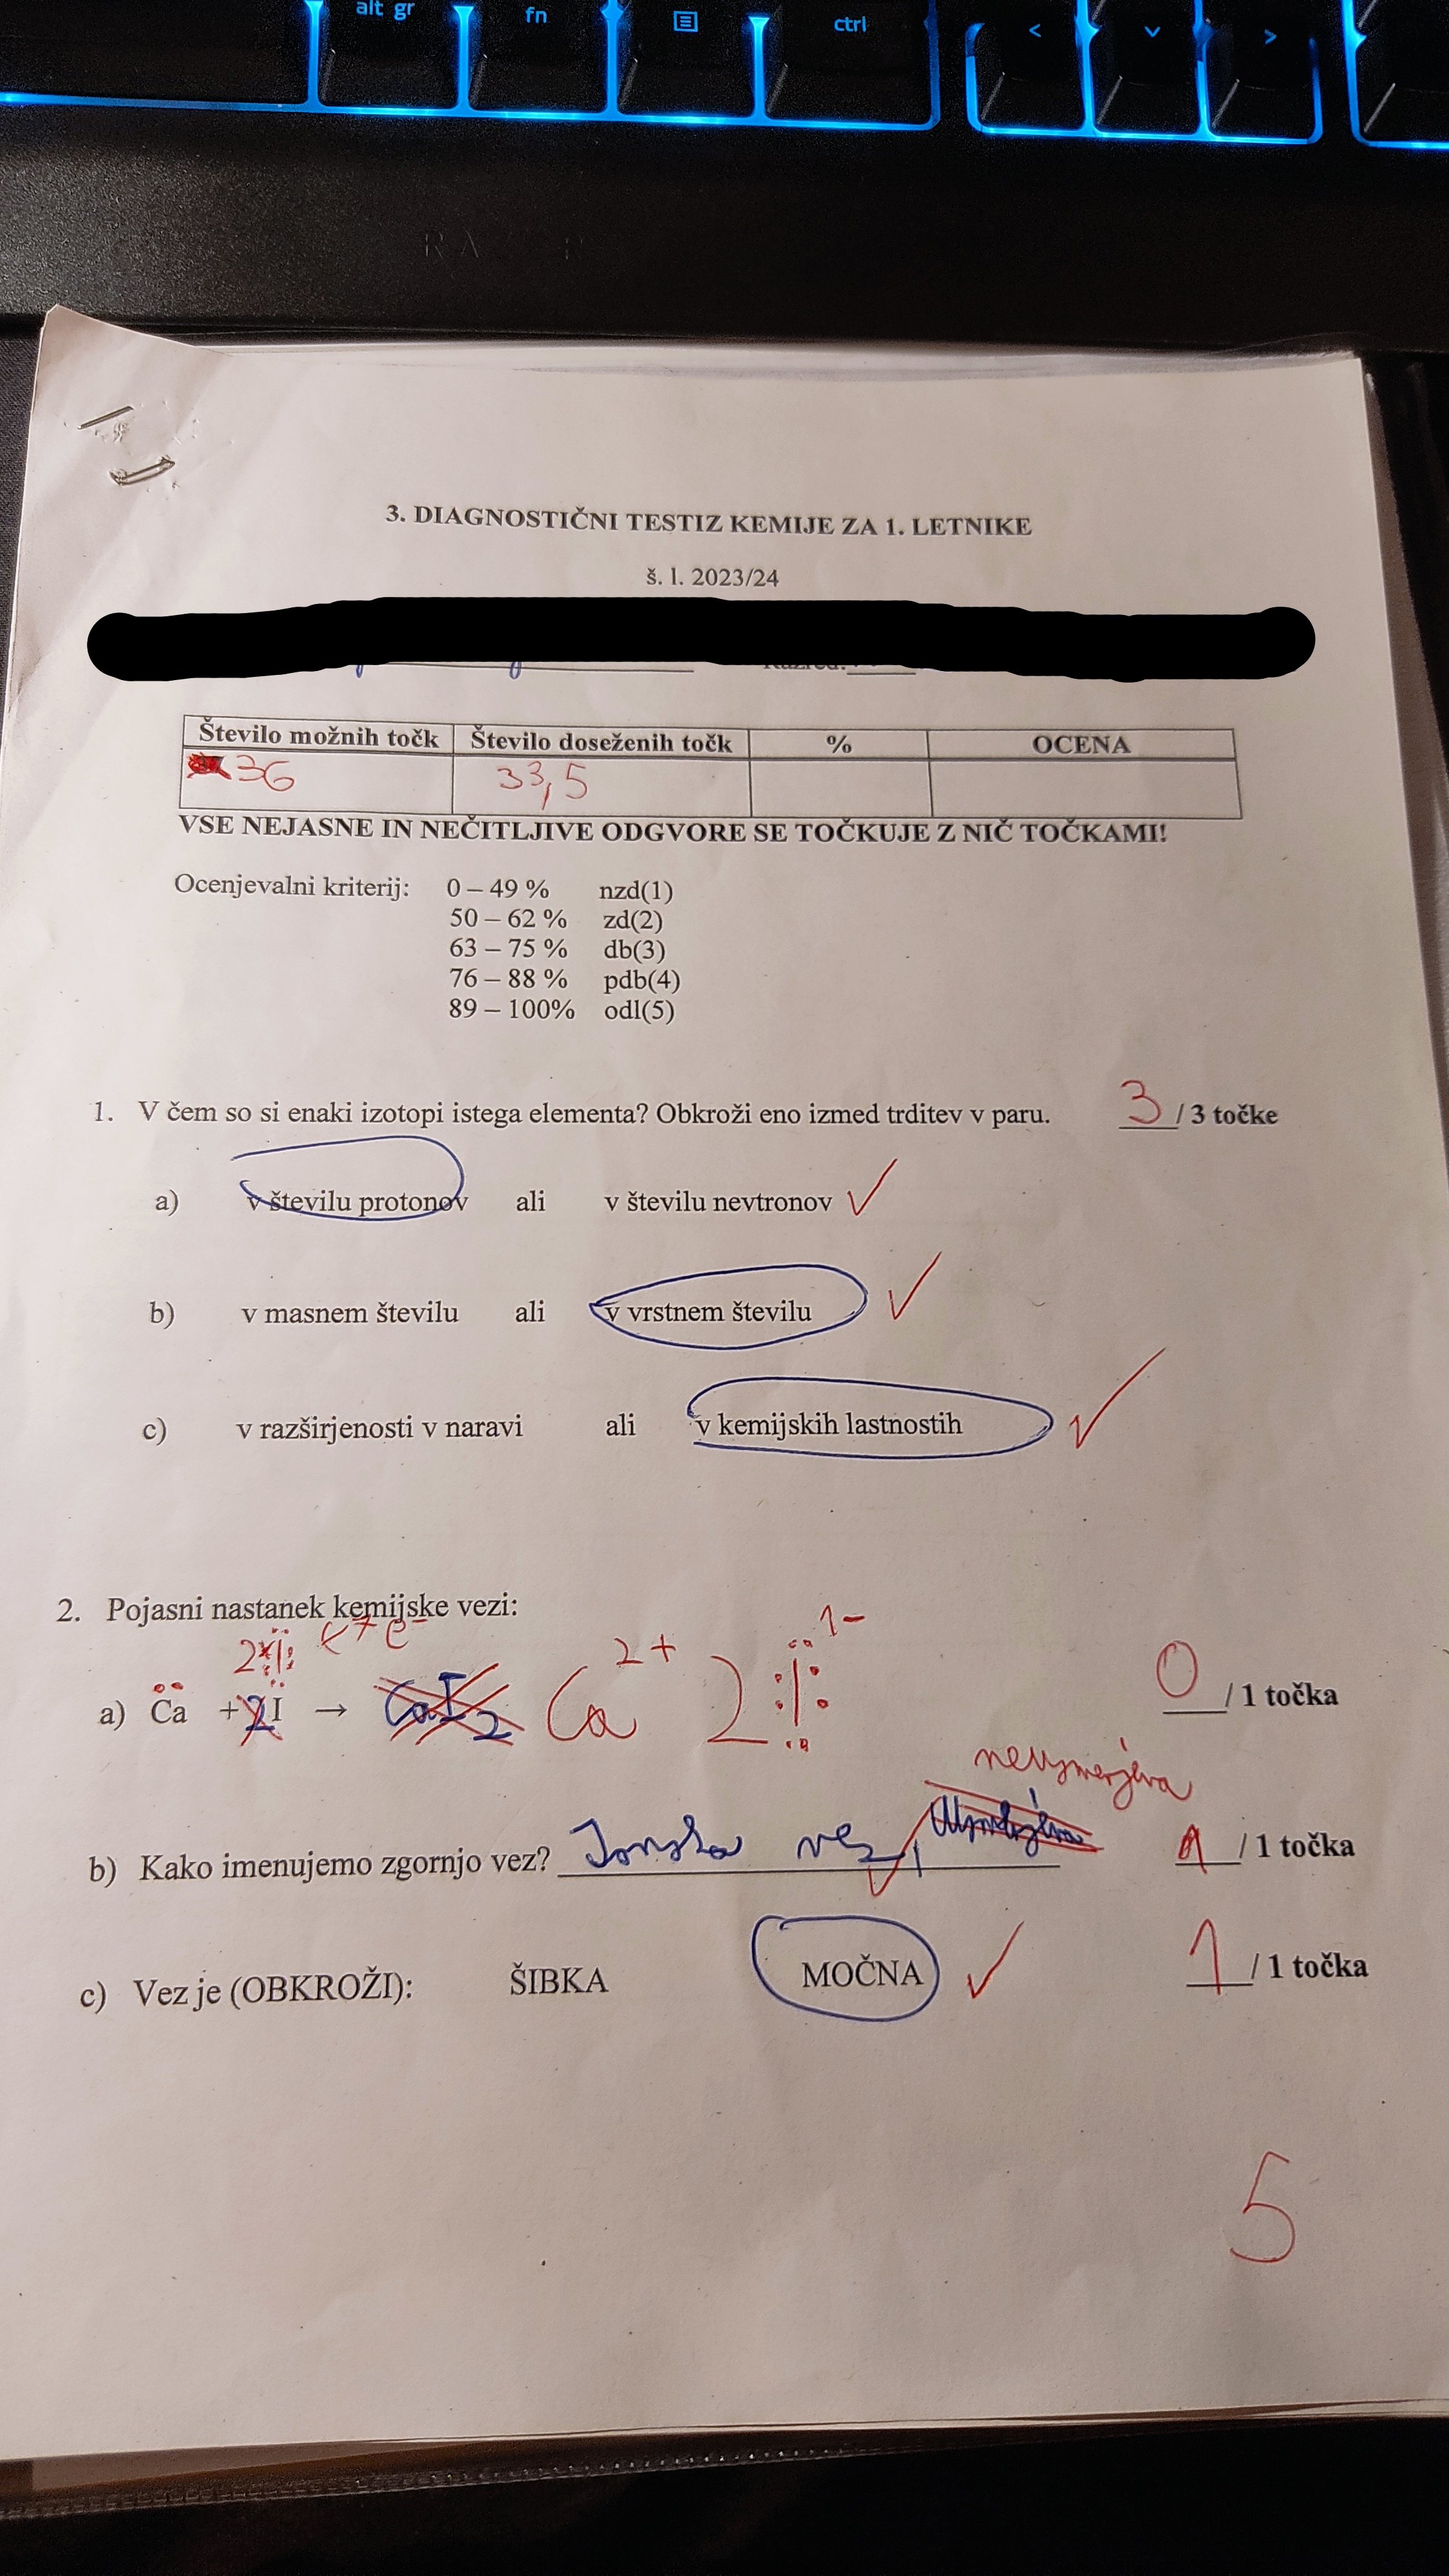 alt gr fn ctrl < >
3. DIAGNOSTIČNI TESTIZ KEMIJE ZA 1. LETNIKE
š. l. 2023/24
Število možnih točk Število doseženih točk % OCENA
36 33,5
VSE NEJASNE IN NEČITLJIVE ODGVORE SE TOČKUJE Z NIČ TOČKAMI!
Ocenjevalni kriterij: 0 – 49 % nzd(1)
50 – 62 % zd(2)
63 – 75 % db(3)
76 – 88 % pdb(4)
89 – 100% odl(5)
1. V čem so si enaki izotopi istega elementa? Obkroži eno izmed trditev v paru. 3 / 3 točke
a) v številu protonov ali v številu nevtronov ✓
b) v masnem številu ali v vrstnem številu ✓
c) v razširjenosti v naravi ali v kemijskih lastnostih ✓
2. Pojasni nastanek kemijske vezi:
a) Ca + 2I → CaI2 Ca 2+ 2 I 1- 0 / 1 točka
neusmerjena
b) Kako imenujemo zgornjo vez? Ionska vez, ✓ 1 / 1 točka
c) Vez je (OBKROŽI): ŠIBKA MOČNA ✓ 1 / 1 točka
5